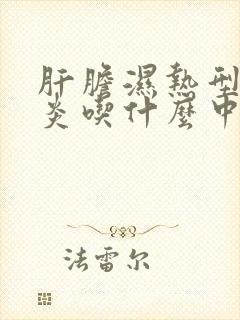 肝膽濕熱型
炎喫什麼中
法雷尔